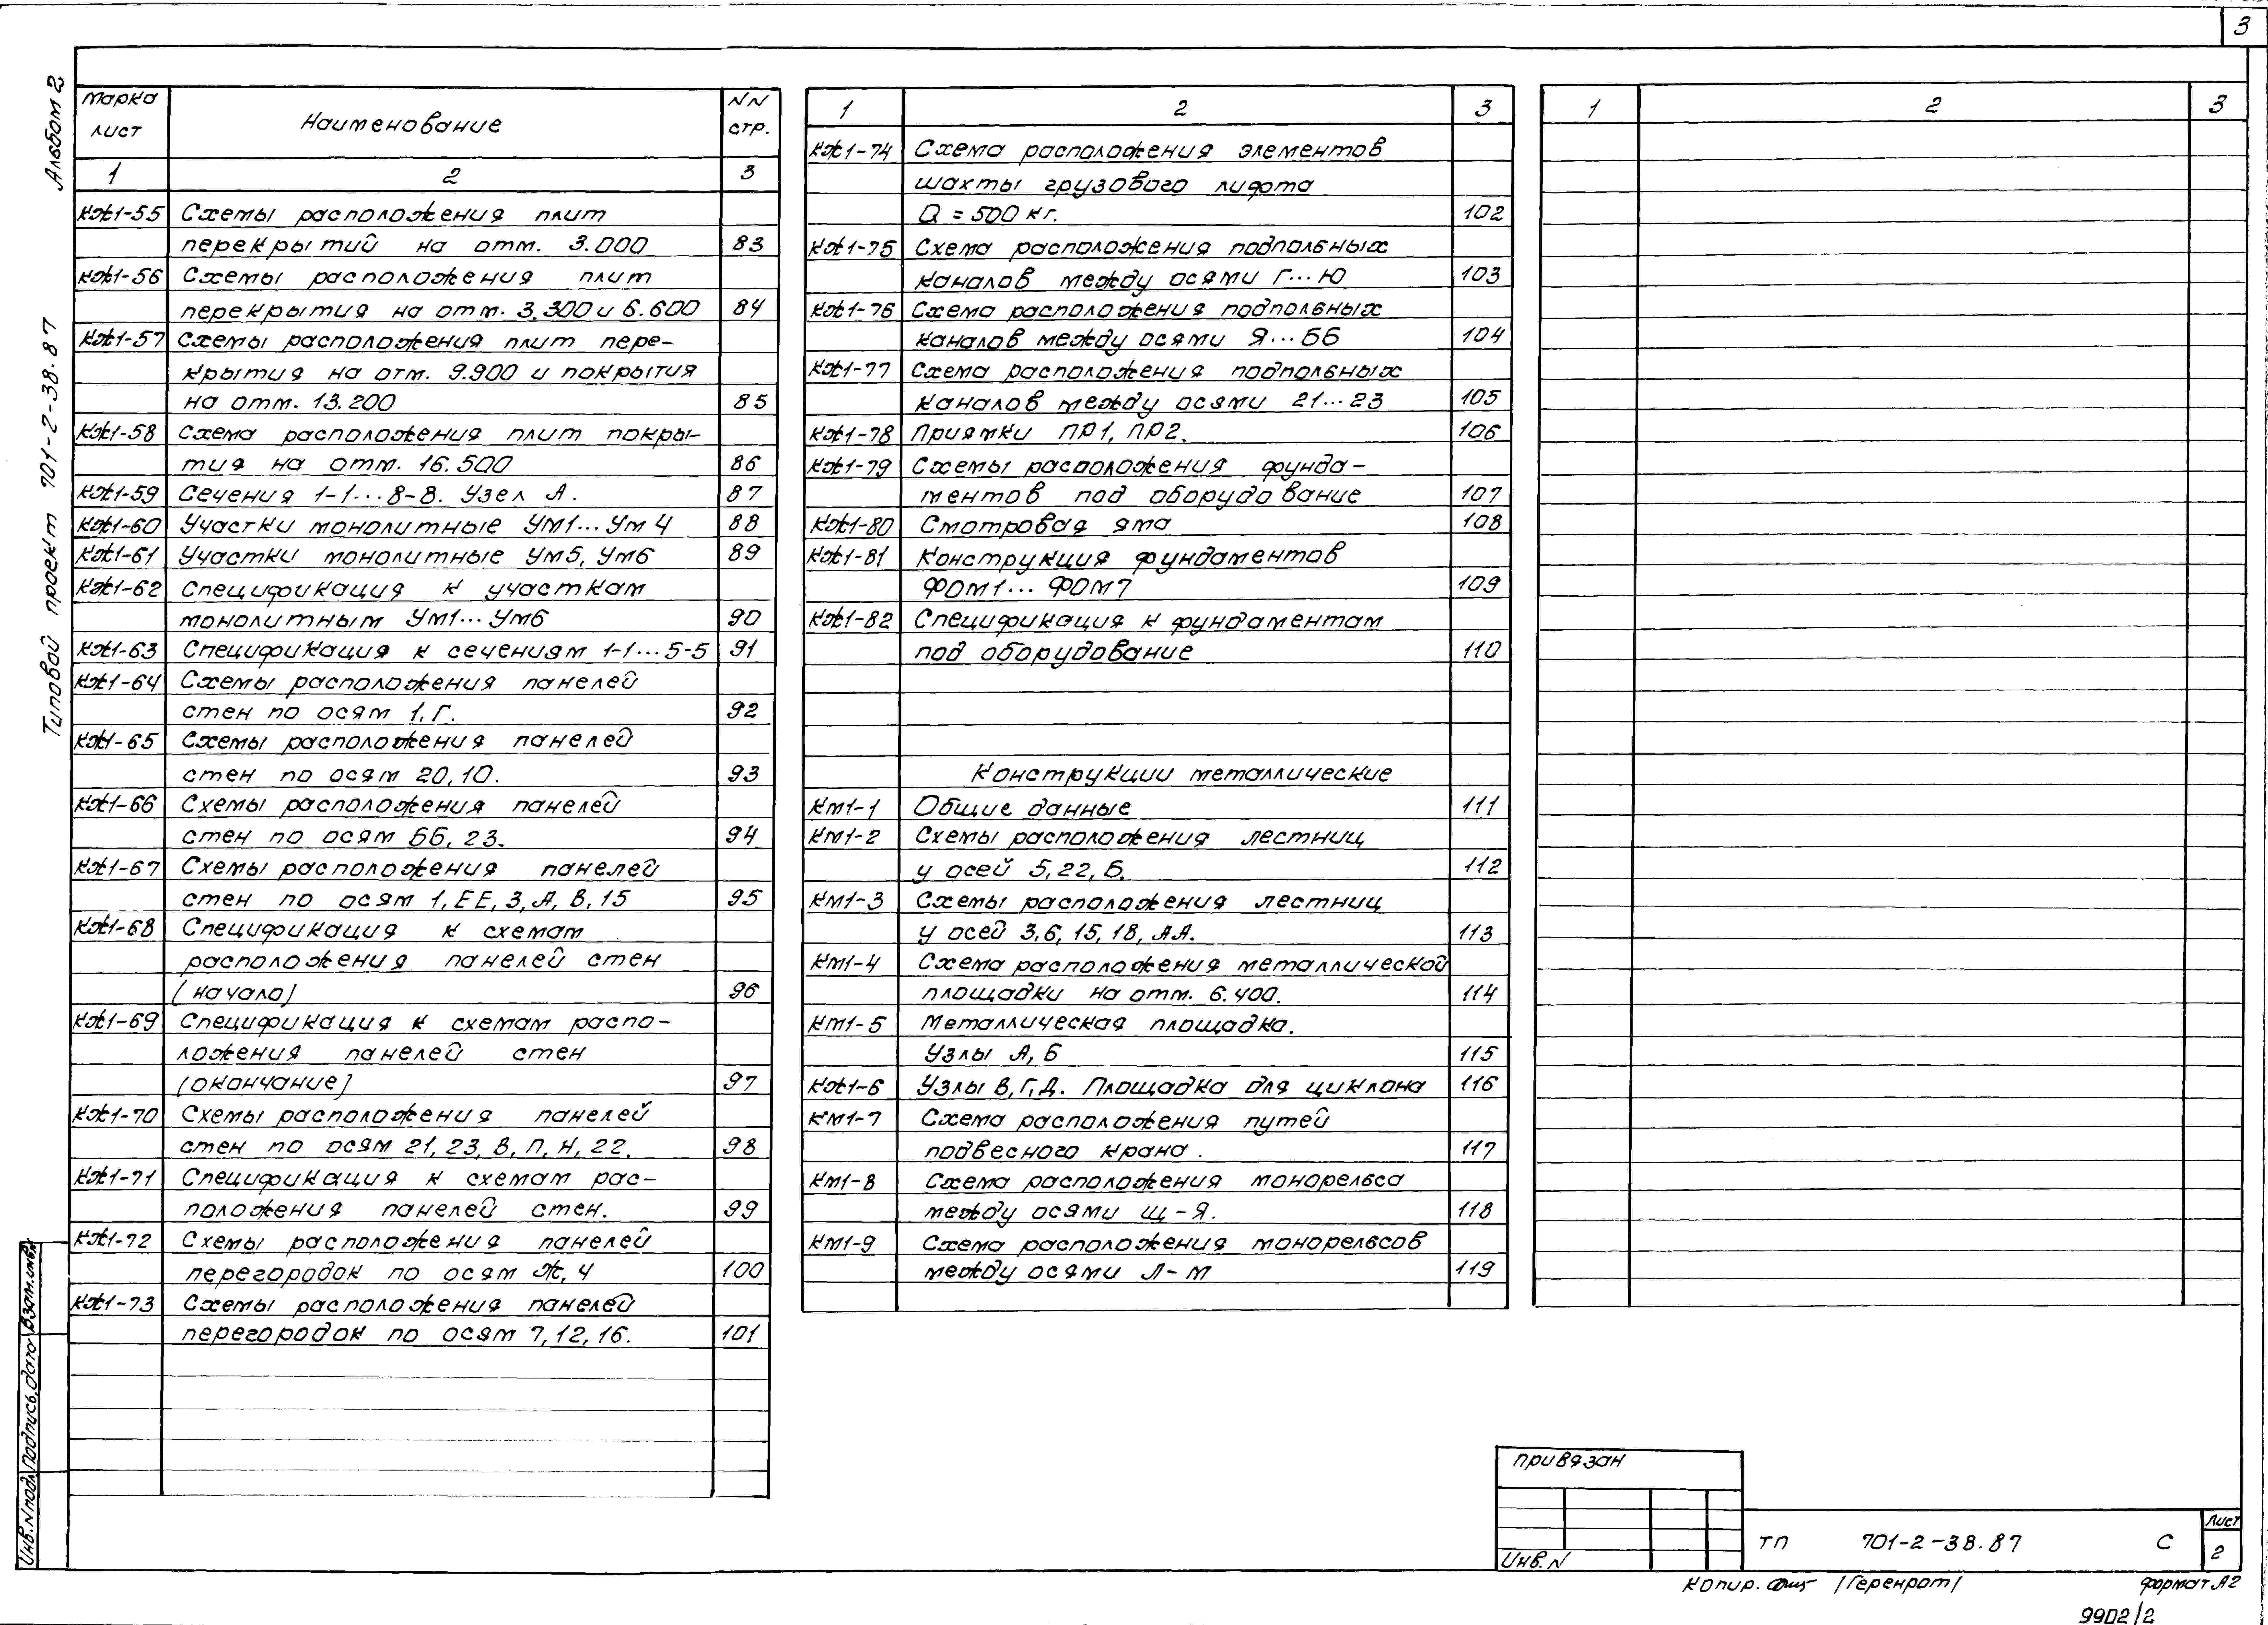 3
Альбом 2
Типовой проект 701-2-38.87
Марка лист Наименование NN стр.
1 2 3
КЖ1-55 Схемы расположения плит
перекрытий на отм. 3.000 83
КЖ1-56 Схемы расположения плит
перекрытия на отм. 3.300 и 6.600 84
КЖ1-57 Схемы расположения плит пере-
крытия на отм. 9.900 и покрытия
на отм. 13.200 85
КЖ1-58 Схема расположения плит покры-
тия на отм. 16.500 86
КЖ1-59 Сечения 1-1...8-8. Узел А. 87
КЖ1-60 Участки монолитные Ум1...Ум4 88
КЖ1-61 Участки монолитные Ум5, Ум6 89
КЖ1-62 Спецификация к участкам
монолитным Ум1...Ум6 90
КЖ1-63 Спецификация к сечениям 1-1...5-5 91
КЖ1-64 Схемы расположения панелей
стен по осям 1, Г. 92
КЖ1-65 Схемы расположения панелей
стен по осям 20, 10. 93
КЖ1-66 Схемы расположения панелей
стен по осям ББ, 23. 94
КЖ1-67 Схемы расположения панелей
стен по осям 1, ЕЕ, 3, А, В, 15 95
КЖ1-68 Спецификация к схемам
расположения панелей стен
(начало) 96
КЖ1-69 Спецификация к схемам распо-
ложения панелей стен
(окончание) 97
КЖ1-70 Схемы расположения панелей
стен по осям 21, 23, В, П, Н, 22. 98
КЖ1-71 Спецификация к схемам рас-
положения панелей стен. 99
КЖ1-72 Схемы расположения панелей
перегородок по осям Ж, 4 100
КЖ1-73 Схемы расположения панелей
перегородок по осям 7, 12, 16. 101
1 2 3
КЖ1-74 Схема расположения элементов
шахты грузового лифта
Q = 500 кг. 102
КЖ1-75 Схема расположения подпольных
каналов между осями Г...Ю 103
КЖ1-76 Схема расположения подпольных
каналов между осями Я...ББ 104
КЖ1-77 Схема расположения подпольных
каналов между осями 21...23 105
КЖ1-78 Приямки ПР1, ПР2. 106
КЖ1-79 Схемы расположения фунда-
ментов под оборудование 107
КЖ1-80 Смотровая яма 108
КЖ1-81 Конструкция фундаментов
ФОм1... ФОм7 109
КЖ1-82 Спецификация к фундаментам
под оборудование 110
Конструкции металлические
Км1-1 Общие данные 111
Км1-2 Схемы расположения лестниц
у осей 5, 22, Б. 112
Км1-3 Схемы расположения лестниц
у осей 3, 6, 15, 18, АА. 113
Км1-4 Схема расположения металлической
площадки на отм. 6.400. 114
Км1-5 Металлическая площадка.
Узлы А, Б 115
КЖ1-6 Узлы В, Г, Д. Площадка для циклона 116
КМ1-7 Схема расположения путей
подвесного крана. 117
Км1-8 Схема расположения монорельса
между осями Щ-Я. 118
Км1-9 Схема расположения монорельсов
между осями Л-М 119
1 2 3
Инв.N подл. Подпись, дата Взам.инв.N
привязан
Инв.N
ТП 701-2-38.87 С
Лист
2
Копир. /Геренрот/ формат А2
9902/2